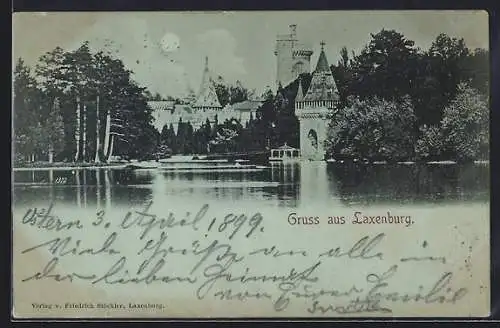 Gruss aus Laxenburg.
Ostern 3. April 1899.
Viele Grüße an alle in
der lieben Heimat
von Eurer Emilie
Verlag v. Friedrich Stöckler, Laxenburg.